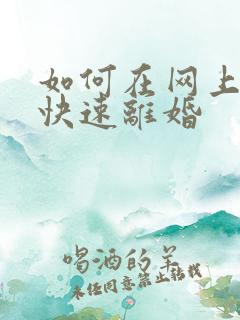 如何在网上
快速離婚
喝酒的羊
未经同意禁止转载